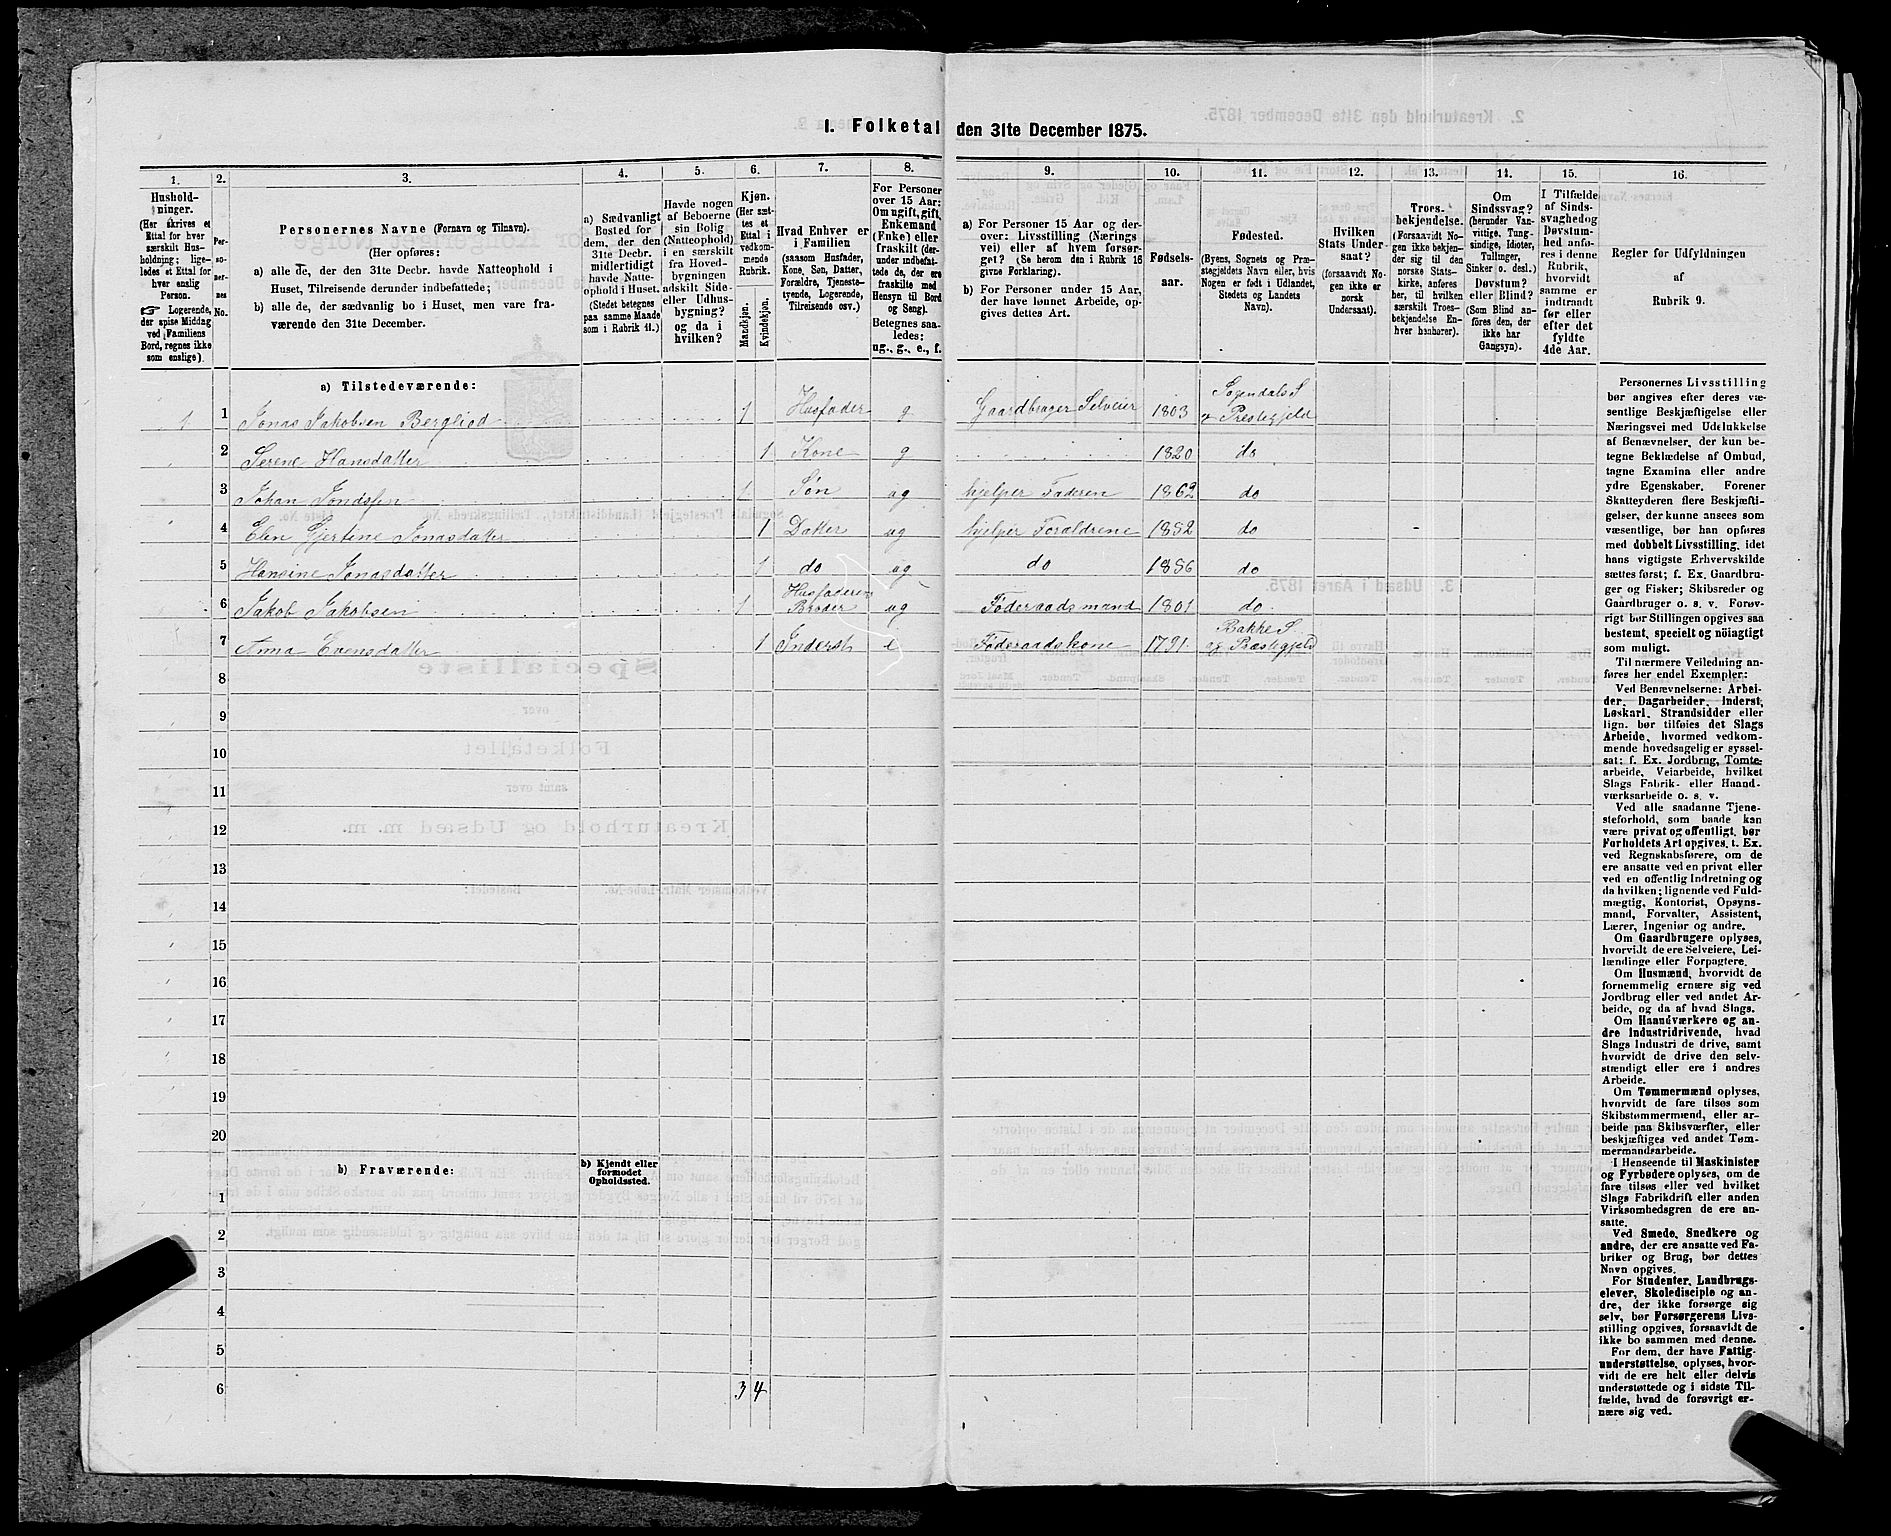 I. Folketal den 31te December 1875.
1. 2. 3. 4. 5. 6. 7. 8. 9. 10. 11. 12. 13. 14. 15. 16.
Hushold-
ninger.
(Her skrives et
Ettal for hver
særskilt Hus-
holdning; lige-
ledes et Ettal for
hver enslig
Person.
☞ Logerende,
der spise Middag
ved Familiens
Bord, regnes ikke
som enslige).
Per-
so-
ner-
nes
No.
Personernes Navne (Fornavn og Tilnavn).
(Her opføres:
a) alle de, der den 31te Decbr. havde Natteophold i
Huset, Tilreisende derunder indbefattede;
b) alle de, der sædvanlig bo i Huset, men vare fra-
værende den 31te December.
a) Sædvanligt
Bosted for
dem, der den
31te Decbr.
midlertidigt
havde Natte-
ophold i Huset.
(Stedet betegnes
paa samme Maade
som i Rubrik 11.)
Havde nogen
af Beboerne
sin Bolig
(Natteophold)
i en særskilt
fra Hoved-
bygningen
adskilt Side-
eller Udhus-
bygning?
og da i
hvilken?
Kjøn.
(Her sæt-
tes et
Ettal i
vedkom-
mende
Rubrik.
Mandkjøn.
Kvindekjøn.
Hvad Enhver er
i Familien
(saasom Husfader,
Kone, Søn, Datter,
Forældre, Tjeneste-
tyende, Logerende,
Tilreisende osv.)
For Personer
over 15 Aar:
Om ugift, gift,
Enkemand
(Enke) eller
fraskilt (der-
under indbefat-
tede de, der ere
fraskilte med
Hensyn til Bord
og Seng).
Betegnes saa-
ledes:
ug., g., e., f.
a) For Personer 15 Aar og der-
over: Livsstilling (Nærings
vei) eller af hvem forsør-
get? (Se herom den i Rubrik 16
givne Forklaring).
b) For Personer under 15 Aar,
der have lønnet Arbeide, op-
gives dettes Art.
Fødsels-
aar.
Fødested.
(Byens, Sognets og Præ-
stegjeldets Navn eller, hvis
Nogen er født i Udlandet,
Stedets og Landets
Navn).
Hvilken
Stats Under-
saat?
(forsaavidt No-
gen ikke er
norsk
Undersaat).
Troes-
bekjendelse.
(Forsaavidt No-
gen ikke bekjen-
der sig til den
norske Stats-
kirke, anføres
her, til hvilken
særskilt Troes-
bekjendelse En-
hver henhører).
Om
Sindssvag?
(herunder Van-
vittige, Tung-
sindige, Idioter,
Tullinger,
Sinker o. desl.)
Døvstum?
eller Blind?
(Som Blind an-
føres den, der
ikke har
Gangsyn).
I Tilfælde
af Sinds-
svaghed og
Døvstum-
hed anfø-
res i denne
Rubrik,
hvorvidt
samme er
indtraadt
før eller
efter det
fyldte
4de Aar.
Regler for Udfyldningen
af
Rubrik 9.
a) Tilstedeværende:
1 1 Jonas Jakobsen Bergliod 1 Husfader g Gaardbruger Selveier 1803 Sogendals S & Prestegjeld
2 Serene Hansdatter 1 Kone g 1820 do
3 Johan Jondssen 1 Søn ug hjelper Faderen 1862 do
4 Elen Gjertine Jonasdatter 1 Datter ug hjelper Foraldrene 1852 do
5 Hansine Jonasdatter 1 do ug do 1856 do
6 Jakob Jakobsen 1 Husfaderens Broder ug Føderaadsmand 1801 do
7 Anna Evensdatter 1 Inderst e Føderaadskone 1791 Bakke S og Præstegjeld
8
9
10
11
12
13
14
15
16
17
18
19
20
b) Fraværende:
b) Kjendt eller
formodet
Opholdssted.
1
2
3
4
5
6 3 4
Personernes Livsstilling
bør angives efter deres væ-
sentlige Beskjæftigelse eller
Næringsvei med Udelukkelse
af Benævnelser, der kun be-
tegne Beklædelse af Ombud,
tagne Examina eller andre
ydre Egenskaber. Forener
Skatteyderen flere Beskjæfti-
gelser, der kunne ansees som
væsentlige, bør han opføres
med dobbelt Livsstilling, idet
hans vigtigste Erhvervskilde
sættes først; f. Ex. Gaardbru-
ger og Fisker; Skibsreder og
Gaardbruger o. s. v. Forøv-
rigt bør Stillingen opgives saa
bestemt, specielt og nöiagtigt
som muligt.
Til nærmere Veiledning an-
føres her endel Exempler:
Ved Benævnelserne: Arbei-
der, Dagarbeider, Inderst,
Løskarl, Strandsidder eller
lign. bør tilføies det Slags
Arbeide, hvormed vedkom-
mende hovedsagelig er syssel-
sat; f. Ex. Jordbrug, Tomte-
arbeide, Veiarbeide, hvilket
Slags Fabrik- eller Haand-
værksarbeide o. s. v.
Ved alle saadanne Tjene-
steforhold, som baade kan
være privat og offentligt, bør
Forholdets Art opgives, t. Ex.
ved Regnskabsførere, om de
ere ansatte ved en privat eller
ved en offentlig Indretning og
da hvilken; lignende ved Fuld-
mægtig, Kontorist, Opsyns-
mand, Forvalter, Assistent,
Lærer, Ingeniør og andre.
Om Gaardbrugere oplyses,
hvorvidt de ere Selveiere, Lei-
lændinge eller Forpagtere.
Om Husmænd, hvorvidt de
fornemmelig ernære sig ved
Jordbrug eller ved andet Ar-
beide, og da af hvad Slags.
Om Haandværkere og an-
dre Industridrivende, hvad
Slags Industri de drive, samt
hvorvidt de drive den selv-
stændigt eller ere i andres
Arbeide.
Om Tømmermænd oplyses,
hvorvidt de fare tilsøs som
Skibstømmermænd, eller ar-
beide paa Skibsværfter, eller
beskjæftiges ved andet Tøm-
mermandsarbeide.
I Henseende til Maskinister
og Fyrbødere oplyses, om de
fare tilsøs eller ved hvilket
Slags Fabrikdrift eller anden
Virksomhedsgren de ere an-
satte.
Ved Smede, Snedkere og
andre, der ere ansatte ved Fa-
briker og Brug, bør dettes
Navn opgives.
For Studenter, Landbrugs-
elever, Skoledisciple og an-
dre, der ikke forsørge sig
selv, bør Forsørgerens Livs-
stilling opgives, forsaavidt de
ikke bo sammen med denne.
For dem, der have Fattig-
understøttelse, oplyses, hvor-
vidt de ere helt eller delvis
understøttede og i sidste Til-
fælde, hvad de forøvrigt er-
nære sig ved.